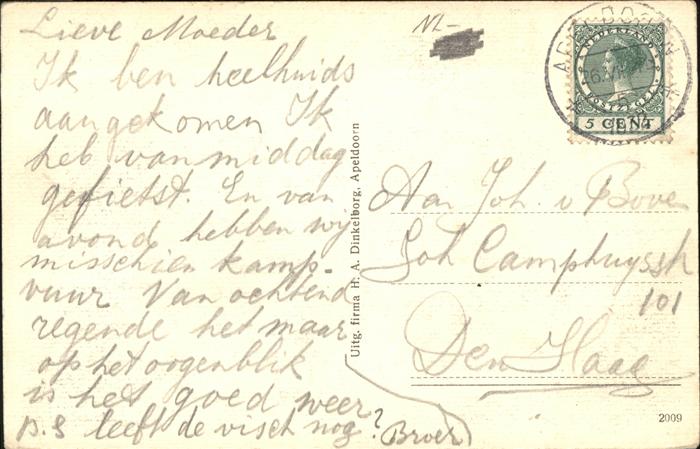 Lieve Moeder
Ik ben heelhuids
aangekomen Ik
heb van middag
gefietst. En van
avond hebben wij
misschien kamp-
vuur Van ochtend
regende het maar
op het oogenblik
is het goed weer
P.S leeft de visch nog?
Broer
NL-
Uitg. firma H. A. Dinkelborg, Apeldoorn
APELDOORN
NEDERLAND
POSTZEGEL
5 CENT
Aan Joh. v Boven
Joh Camphuysstr
101
Den Haag
2009